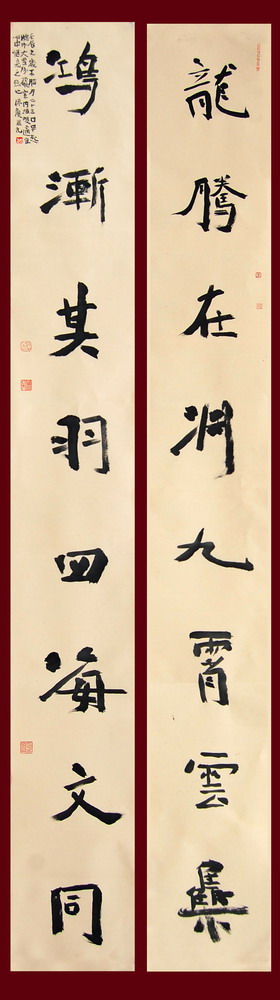 龍騰在淵九霄雲集
鴻漸其羽四海文同